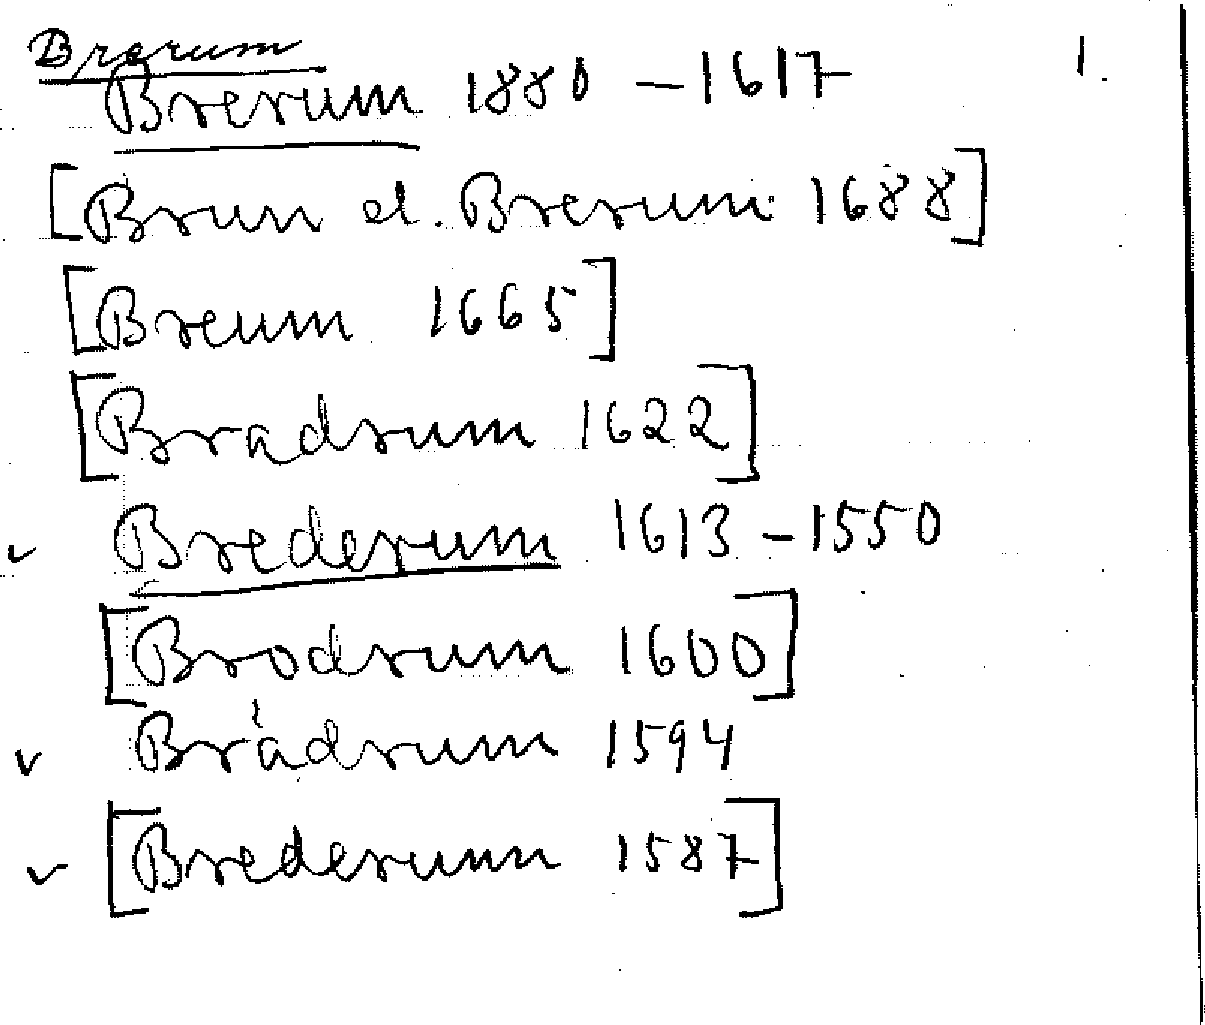 Brerum
1.
Brerum 1880 - 1617
[Brun el. Brerum 1688]
[Breum 1665]
[Bradrum 1622]
v Brederum 1613 - 1550
[Brodrum 1600]
v Brádrum 1594
v [Brederumn 1587]